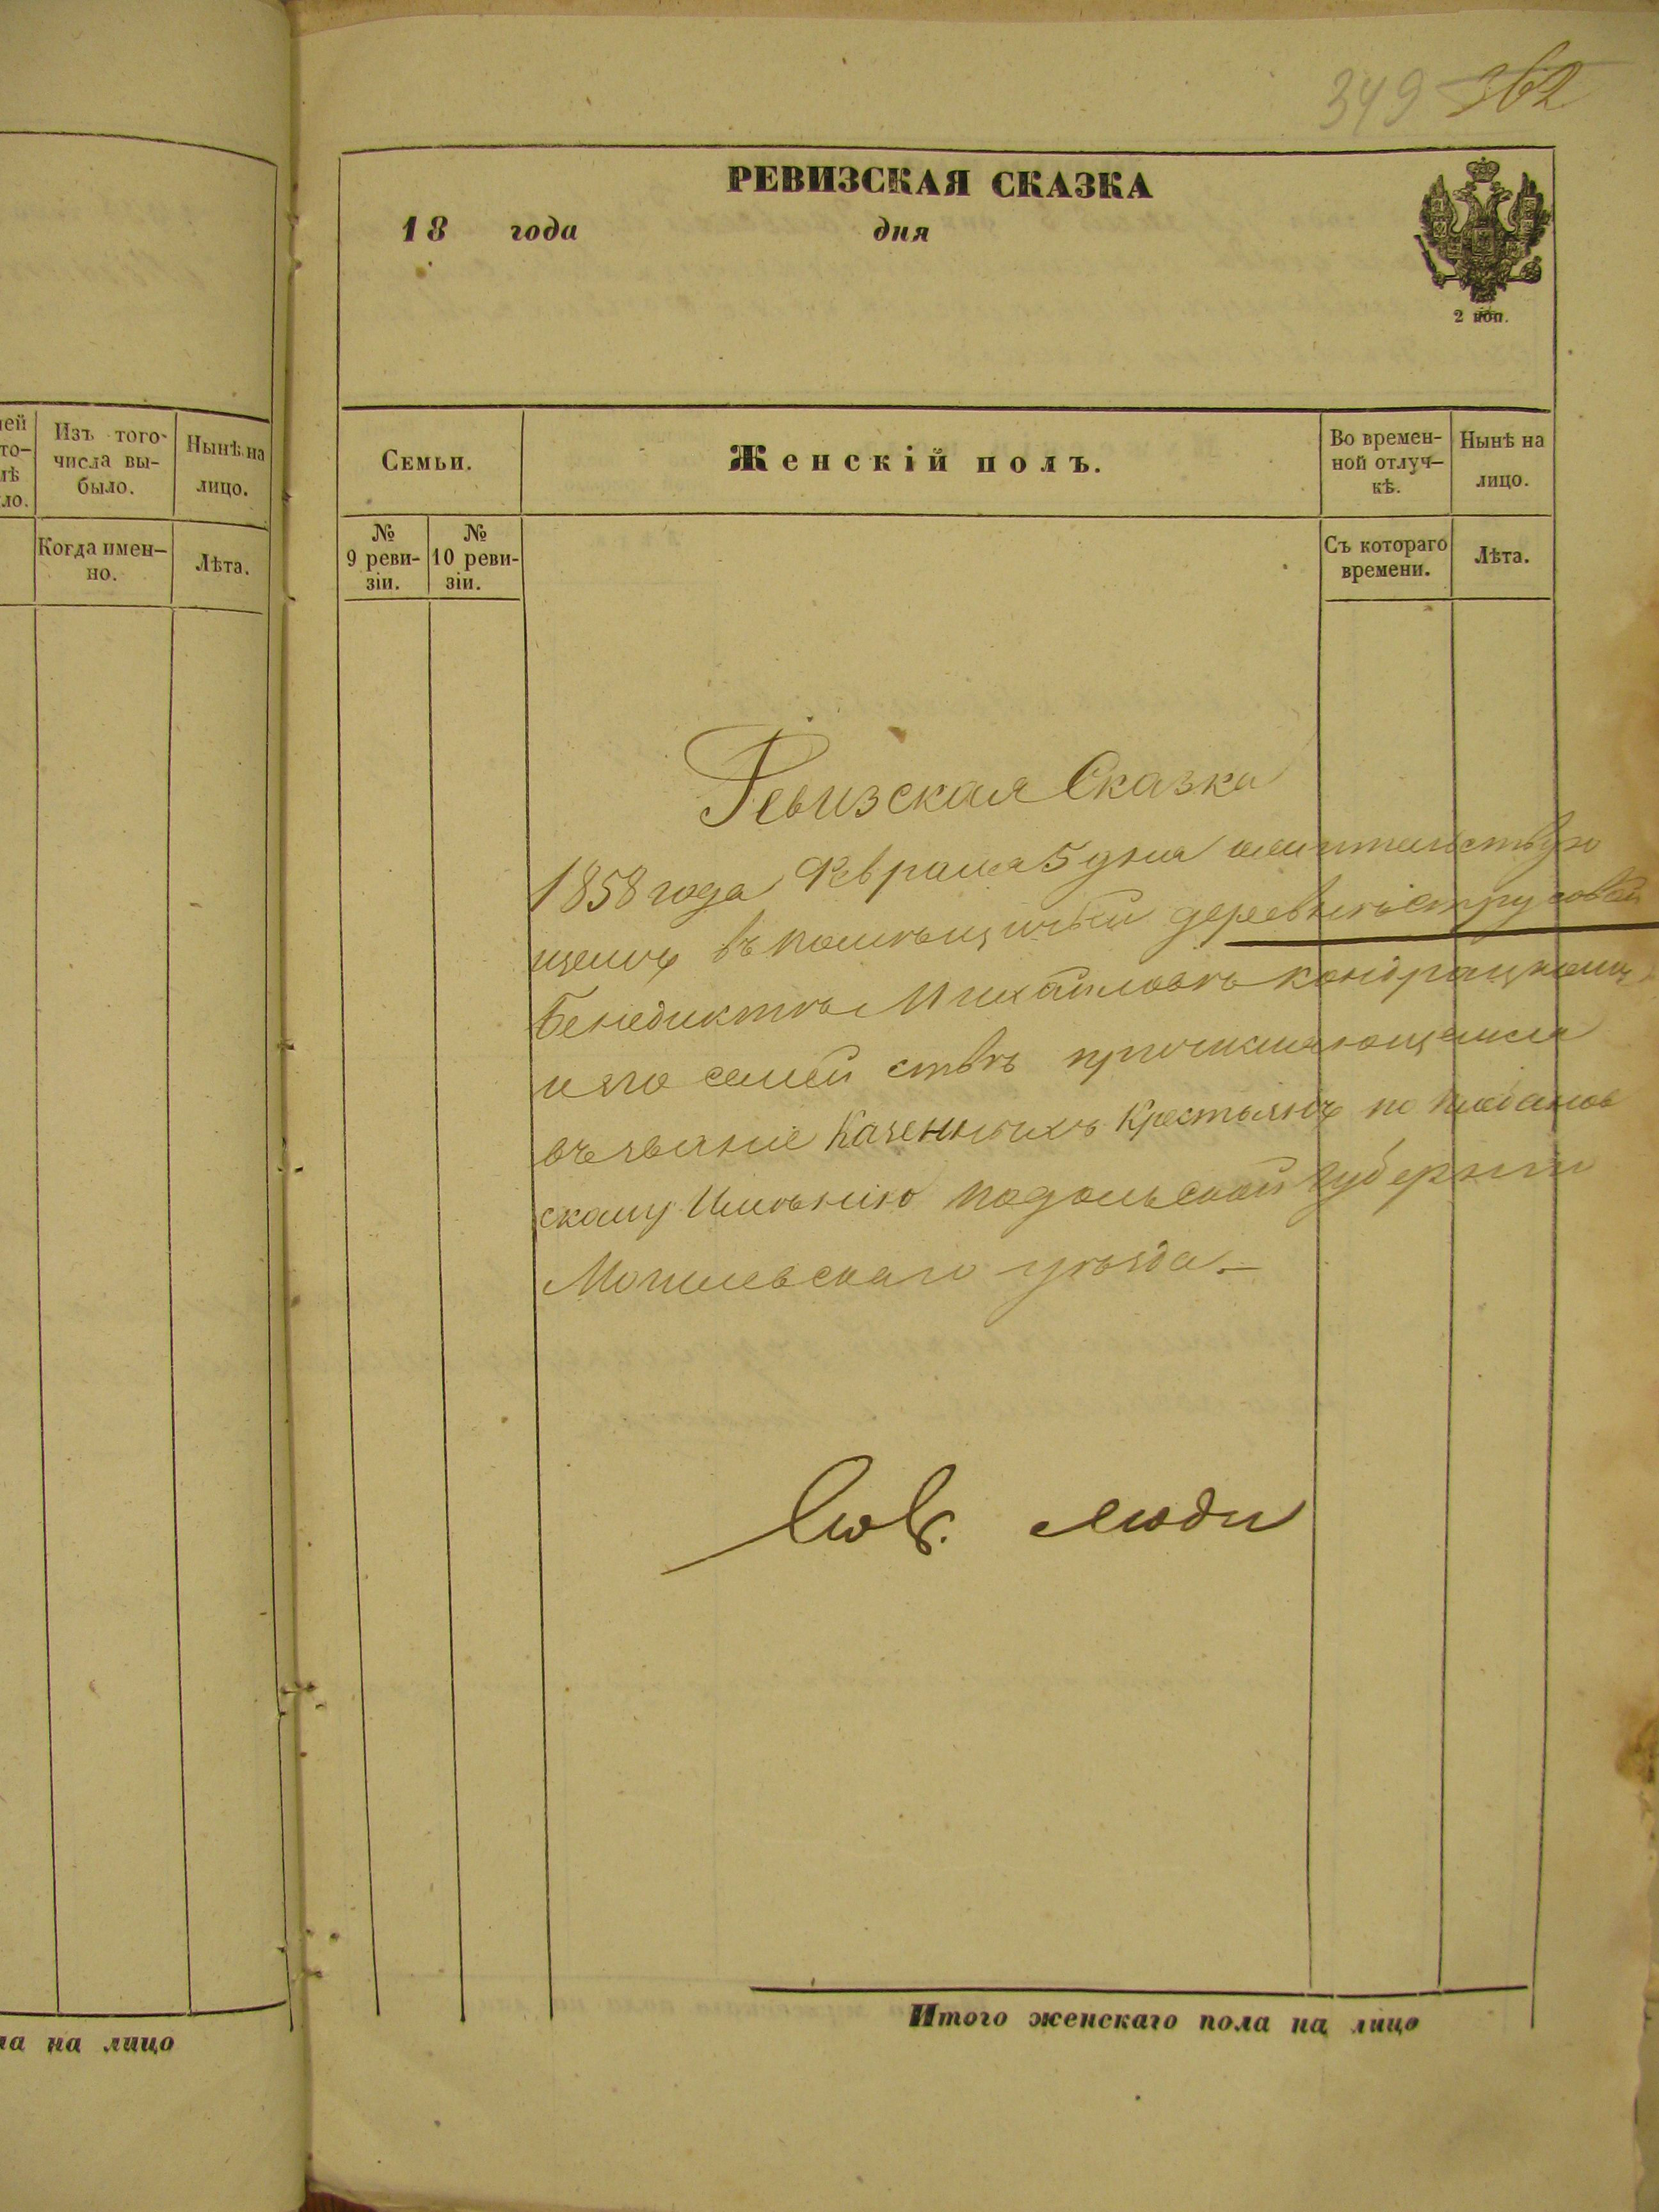 349 362
РЕВИЗСКАЯ СКАЗКА
18 года дня
2 коп.
ней
то-
лѣ
ло.
Изъ того
числа вы-
было.
Нынѣ на
лицо.
Когда имен-
но.
Лѣта.
Семьи.
Женскій полъ.
Во времен-
ной отлуч-
кѣ.
Нынѣ на
лицо.
№
9 реви-
зіи.
№
10 реви-
зіи.
Съ котораго
времени.
Лѣта.
Ревизская Сказка
1858 года Февраля 5 дня жительствую
щемъ въ помѣщичьей деревнѣ Струсовой
Бенедиктѣ Михайловѣ Кондрацкомъ
и его семействѣ причисляющемся
въ званіе Казенныхъ Крестьянъ по
скому Имѣнію Подольской Губерніи
Могилевскаго уѣзда.
люди
Итого женскаго пола на лицо
ла на лицо